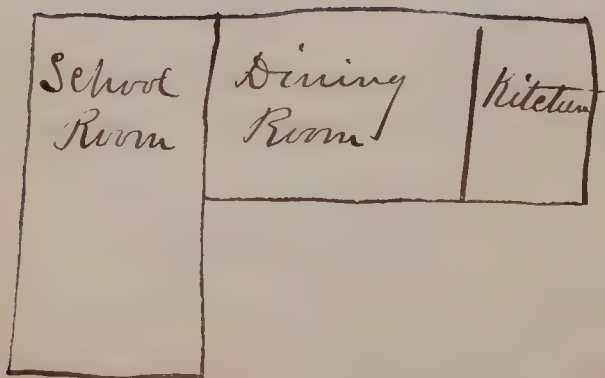 School
Room
Dining
Room
Kitchen